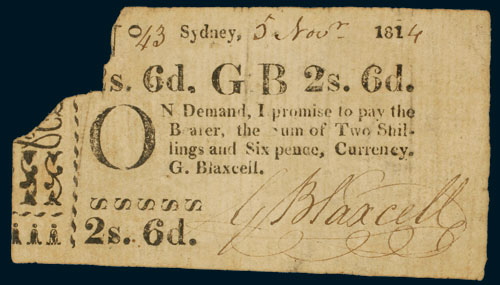 No 43 Sydney, 5 Novr 1814
2s. 6d. GB 2s. 6d.
ON Demand, I promise to pay the
Bearer, the sum of Two Shil-
lings and Six pence, Currency.
G. Blaxcell.
2s. 6d.
G Blaxcell